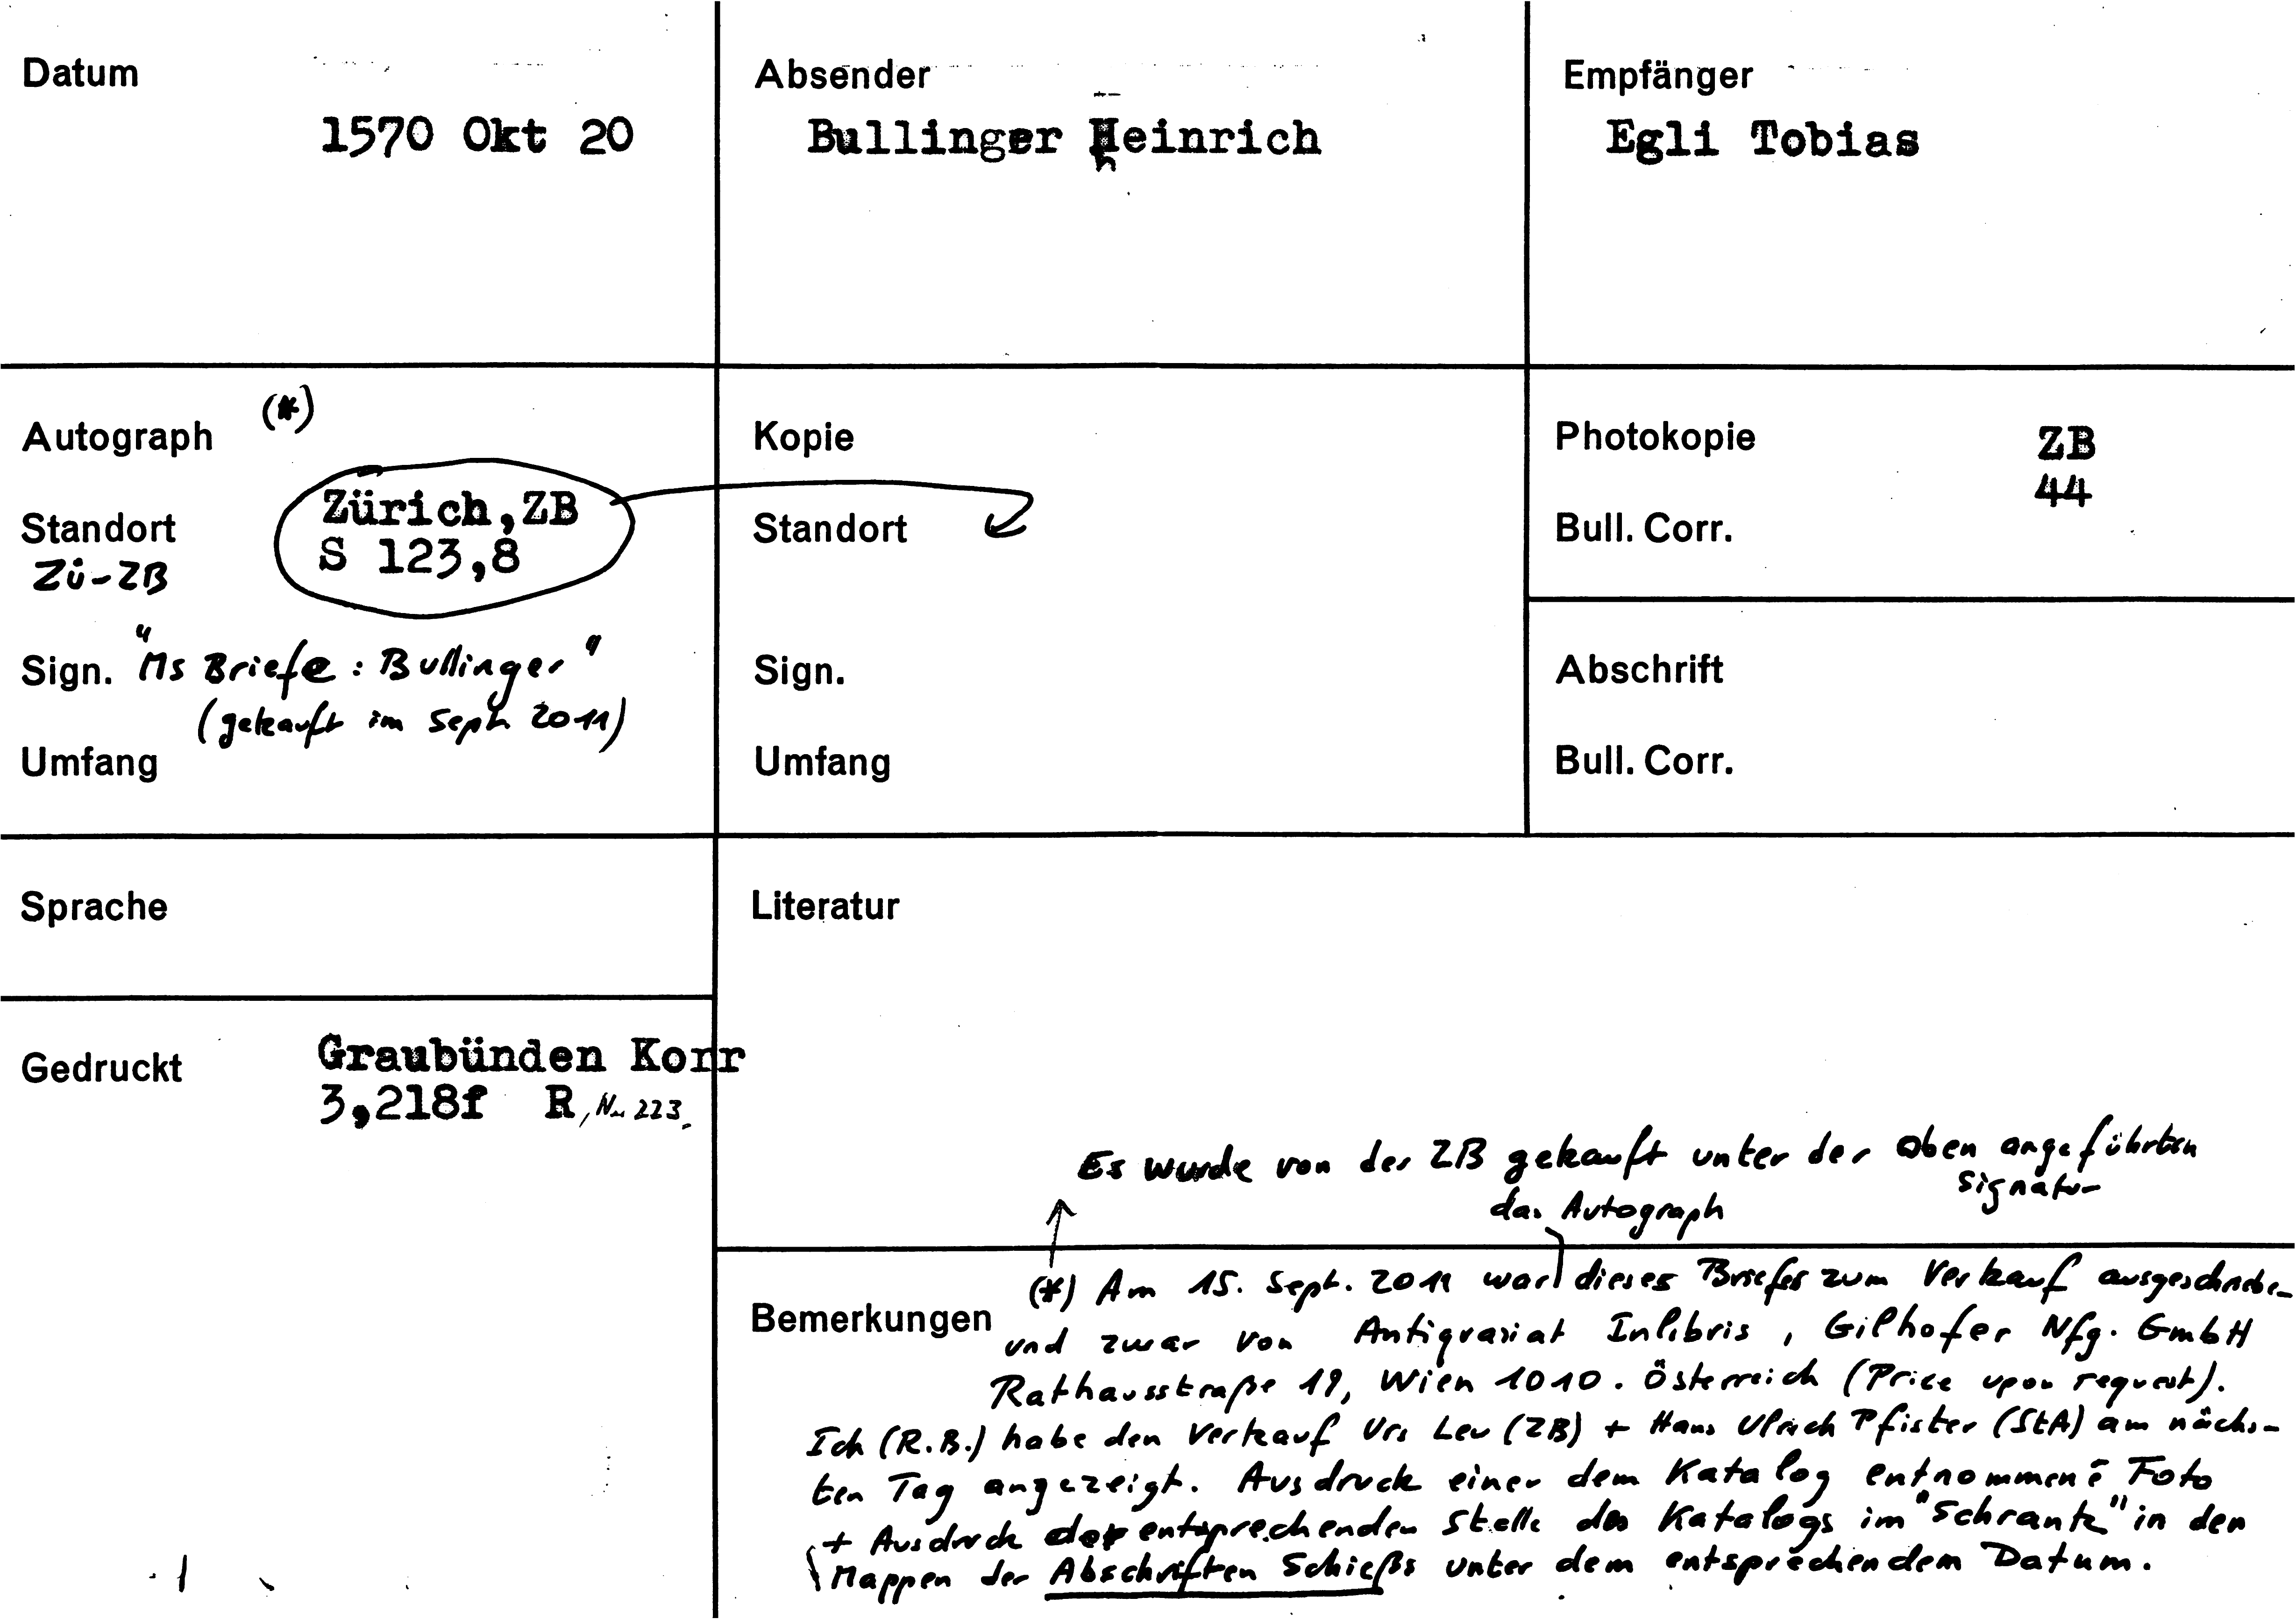 Datum
1570 Okt 20
Absender
Bullinger Heinrich
Empfänger
Egli Tobias
Autograph (*)
Standort
Zürich,ZB
S 123,8
Zü-ZB
Sign. "Ms Briefe: Bullinger"
(gekauft im Sept. 2011)
Umfang
Kopie
Standort
Sign.
Umfang
Photokopie
ZB
44
Bull. Corr.
Abschrift
Bull. Corr.
Sprache
Literatur
Gedruckt
Graubünden Korr
3,218f R, Nr. 223.
Es wurde von der ZB gekauft unter der oben angeführten
Signatur
das Autograph
Bemerkungen
(*) Am 15. Sept. 2011 war dieses Briefes zum Verkauf ausgeschrieben
und zwar von Antiquariat Inlibris, Gilhofer Nfg. GmbH
Rathausstraße 19, Wien 1010. Österreich (Price upon request).
Ich (R.B.) habe den Verkauf Urs Leu (ZB) + Hans Ulrich Pfister (StA) am nächs-
ten Tag angezeigt. Ausdruck einer dem Katalog entnommenē Foto
+ Ausdruck der entsprechenden Stelle des Katalogs im "Schrank" in den
Mappen der Abschriften Schieß's unter dem entsprechendem Datum.